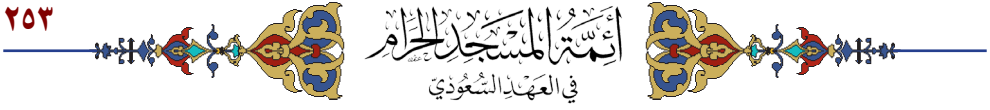 ٢٥٣
أَئِمَّةُ المَسْجِدِ الحَرَامِ
في العَهْدِ السُّعُودِيّ